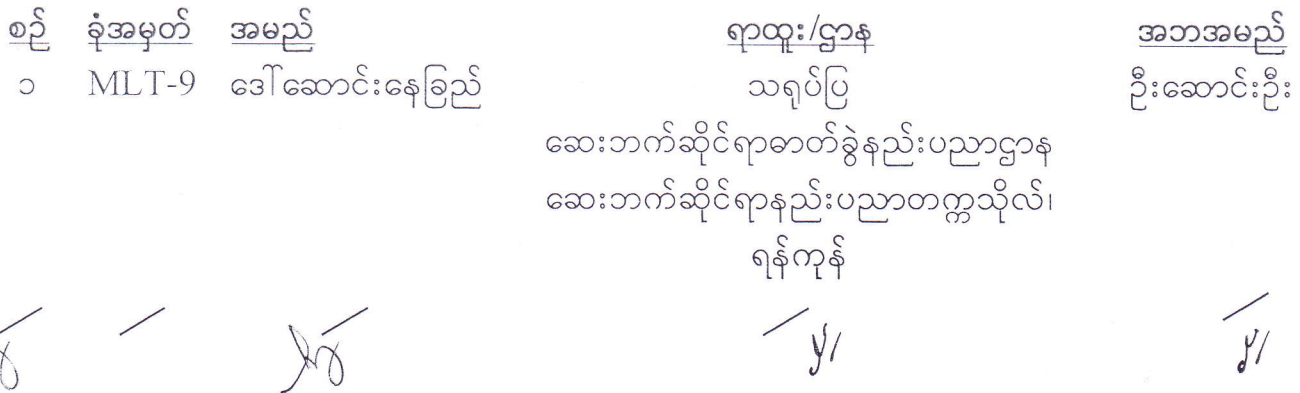 စဉ် ခုံအမှတ် အမည် ရာထူး/ဌာန အဘအမည်
၁ MLT-9 ဒေါ်ဆောင်းနေခြည် သရုပ်ပြ ဦးဆောင်းဦး
ဆေးဘက်ဆိုင်ရာဓာတ်ခွဲနည်းပညာဌာန
ဆေးဘက်ဆိုင်ရာနည်းပညာတက္ကသိုလ်၊
ရန်ကုန်